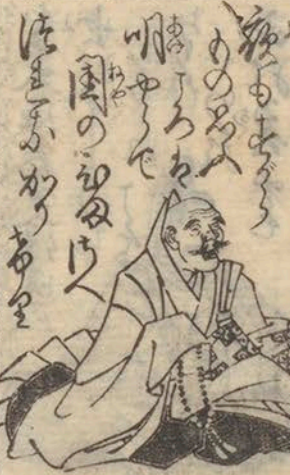 夜もすがら
もの思ふ
ころは
明やらで
閨のひまさへ
つれなかりけり